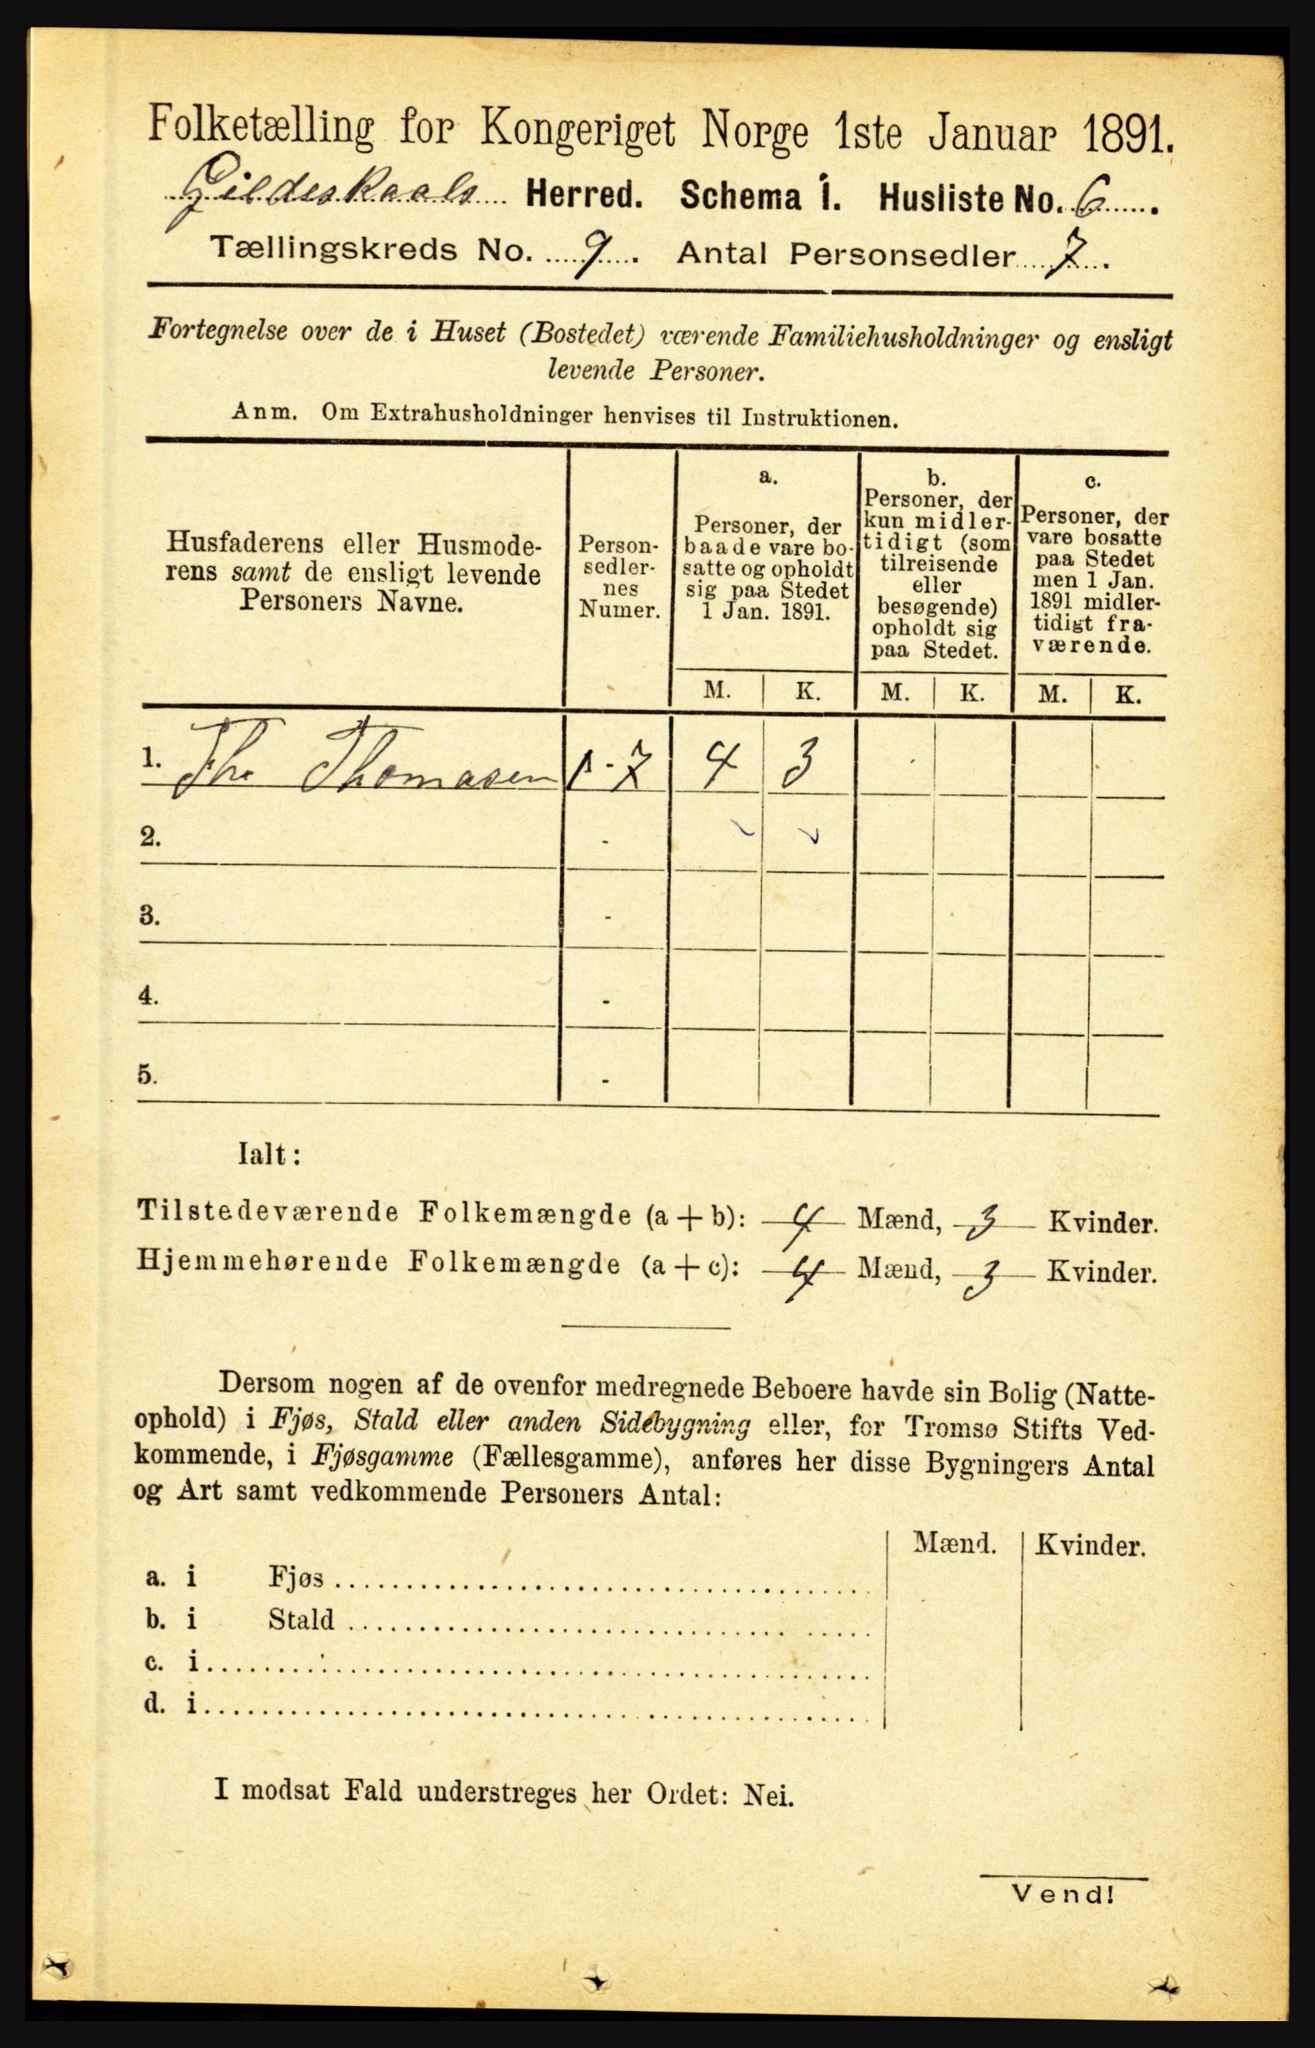 Folketælling for Kongeriget Norge 1ste Januar 1891.
Gildeskaals Herred. Schema I. Husliste No. 6.
Tællingskreds No. 9. Antal Personsedler 7.
Fortegnelse over de i Huset (Bostedet) værende Familiehusholdninger og ensligt
levende Personer.
Anm. Om Extrahusholdninger henvises til Instruktionen.
Husfaderens eller Husmode-
rens samt de ensligt levende
Personers Navne.
Person-
sedler-
nes
Numer.
a.
Personer, der
baade vare bo-
satte og opholdt
sig paa Stedet
1 Jan. 1891.
b.
Personer, der
kun midler-
tidigt (som
tilreisende
eller
besøgende)
opholdt sig
paa Stedet.
c.
Personer, der
vare bosatte
paa Stedet
men 1 Jan.
1891 midler-
tidigt fra-
værende.
M. K. M. K. M. K.
1. Thomasen 1-7 4 3
2. -
3. -
4. -
5. -
Ialt:
Tilstedeværende Folkemængde (a+b): 4 Mænd, 3 Kvinder.
Hjemmehørende Folkemængde (a+c): 4 Mænd, 3 Kvinder.
Dersom nogen af de ovenfor medregnede Beboere havde sin Bolig (Natte-
ophold) i Fjøs, Stald eller anden Sidebygning eller, for Tromsø Stifts Ved-
kommende, i Fjøsgamme (Fællesgamme), anføres her disse Bygningers Antal
og Art samt vedkommende Personers Antal:
Mænd. Kvinder.
a. i Fjøs
b. i Stald
c. i
d. i
I modsat Fald understreges her Ordet: Nei.
Vend!